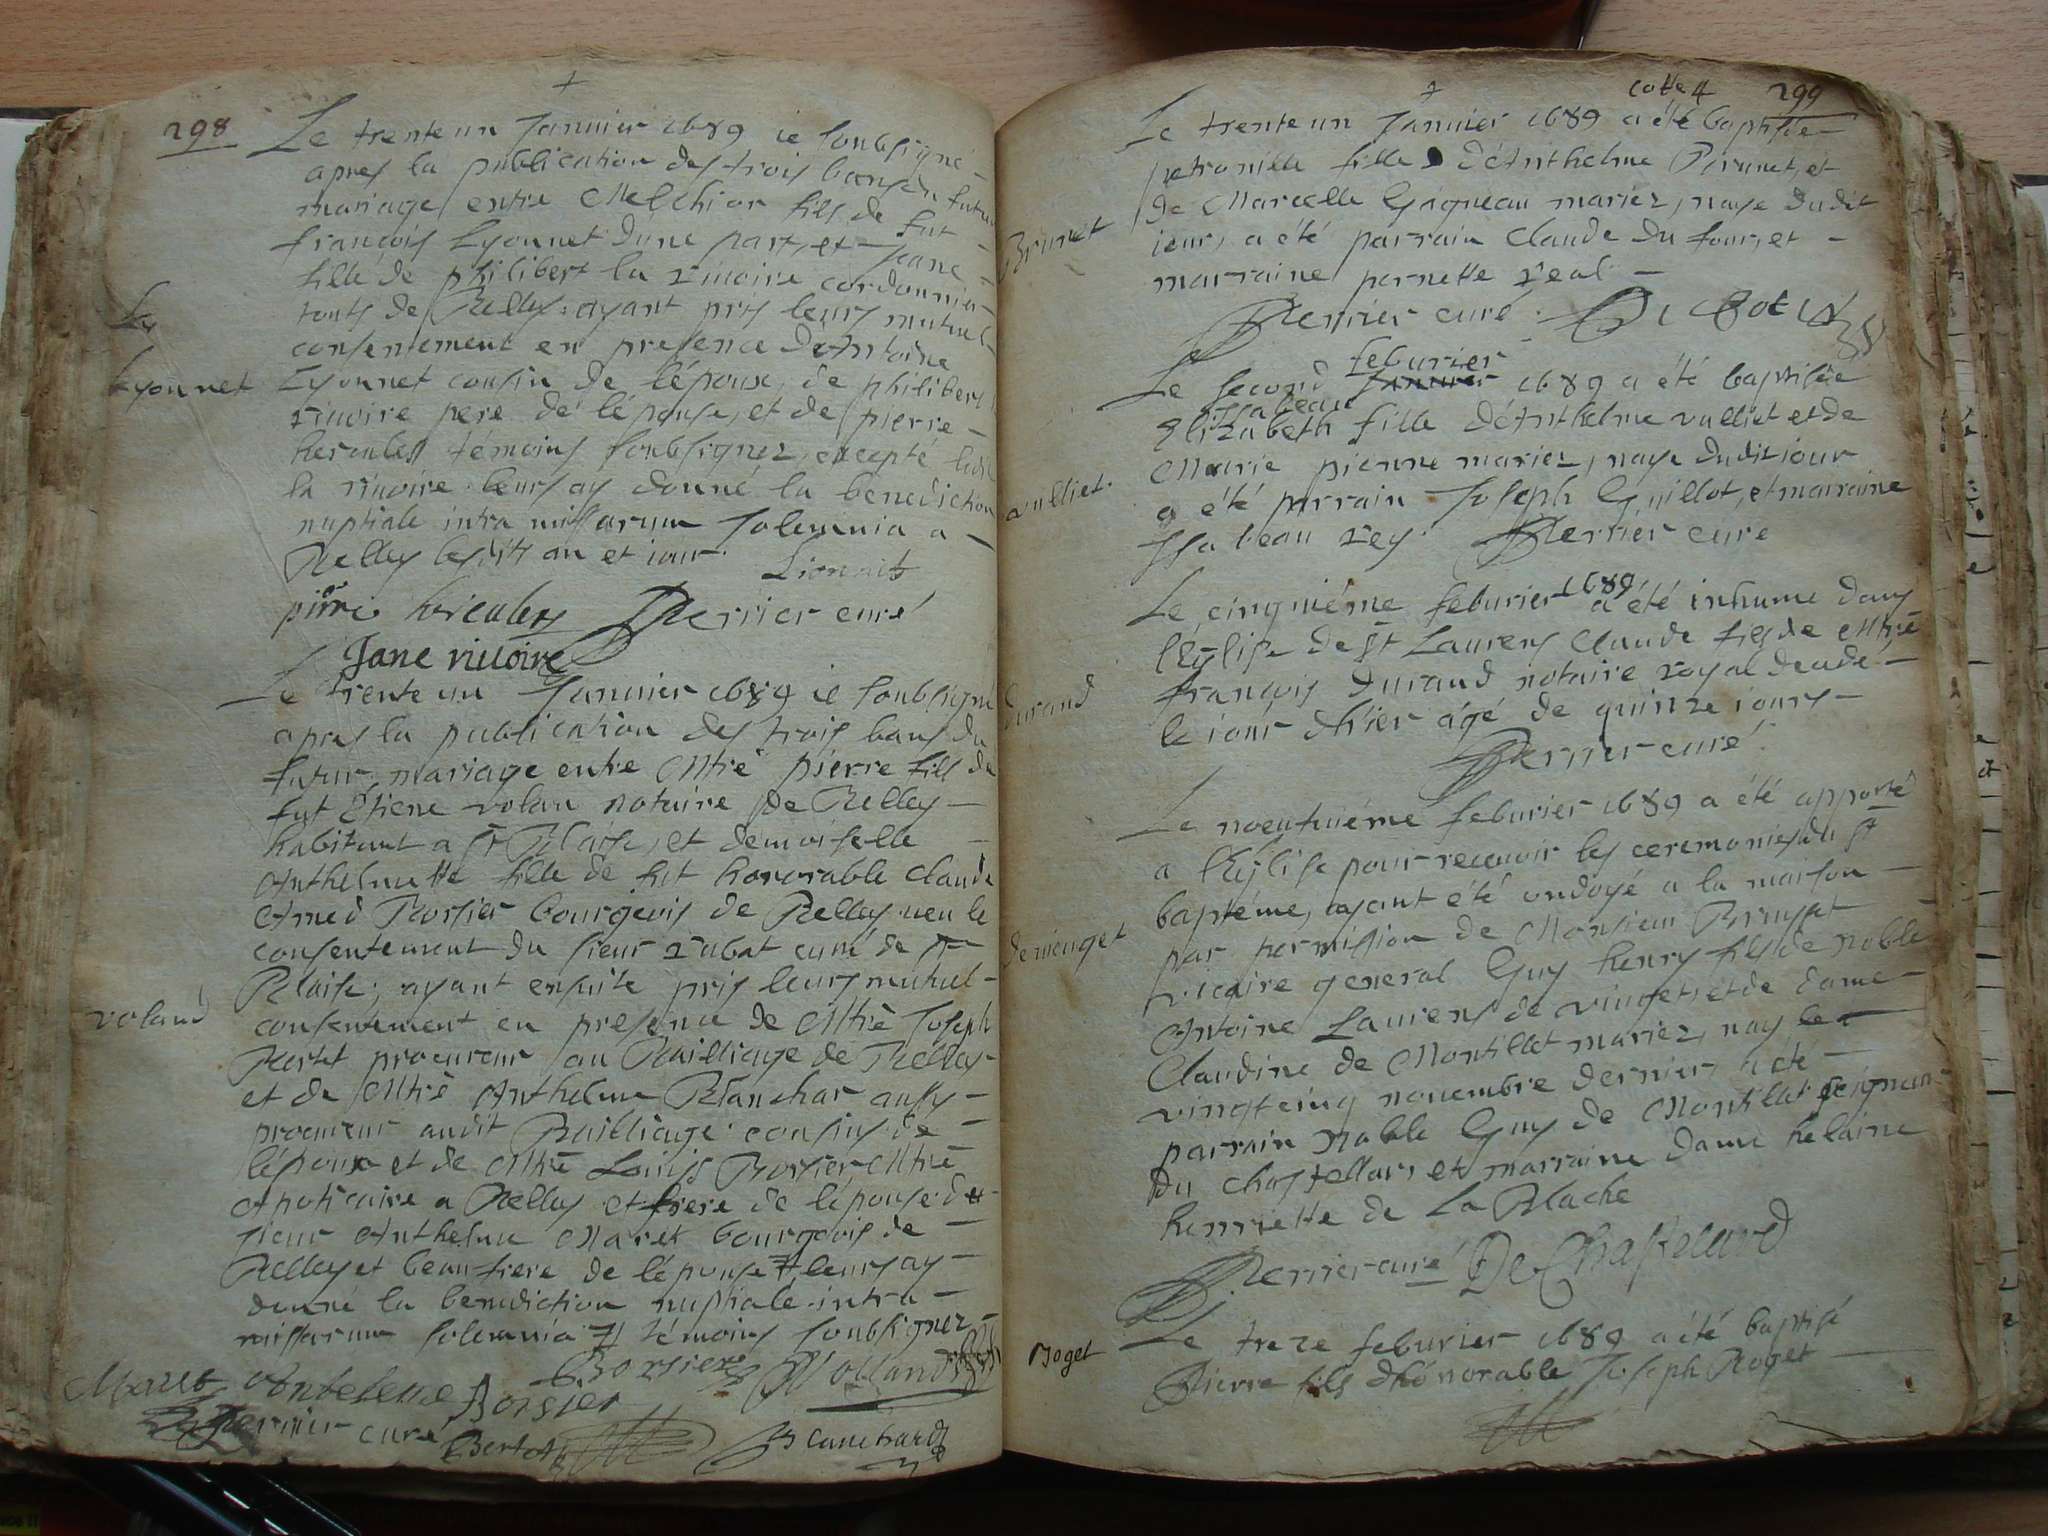 298
Le trente un Januier 1689 ie soubsigné
apres la publication des trois bans du futur
mariage entre Melchior fils de fut
françois Lyonnet dune part, et Jeane
fille de philibert la riuoire cordonnier
touts de Belley, ayant pris leurs mutuel
consentement en presence d'Antoine
Ly
Lyonnet
Lyonnet cousin de l'époux, de philibert
riuoire pere de l'épouse, et de pierre
hercules témoins soubsignez, excepté
la riuoire leurs ay donné la benediction
nuptiale intra missarum solemnia a
Belley lesdits an et iour. Lionnet
pierre hercules Perrier curé
Jane riuoire
Le trente un Januier 1689 ie soubsigné
apres la publication des trois bans du
futur mariage entre Mtre pierre fils de
fut Étiene volan notaire de Belley
habitant a St Blaise, et demoiselle
Anthelmette fille de fut honorable Claude
Amed Borsier bourgeois de Belley, ueu le
consentement du sieur rabat curé de St
Blaise; ayant ensuite pris leurs mutuel
voland
consentement en presence de Mtre Joseph
Bertet procureur au Bailliage de Belley
et de Mtre Anthelme Blanchar aussy
procureur audit Bailliage cousins de
l'époux et de Mtre Louijs Borsier Mtre
Apoticaire a Belley et frere de l'épouse du
sieur Anthelme Maret bourgeois de
Belley et beaufrere de l'épouse # leurs ay
donné la benediction nuptiale intra
missarum solemnia # témoins soubsignez
Maret Anthelme Borsier Borsier Volland
Perrier curé Bertet Blanchard
cotte 4 299
Le trente un Januier 1689 a été baptisée
petronille fille d'Anthelme Brunet, et
de Marcelle Gagneau mariez, naye dudit
Brunet
iour, a été parrain Claude du four, et
marraine pernette real
Perrier curé.
feburier
Le second Januier 1689 a été baptisée
Isabeau
Elizabeth fille d'Anthelme vulliet et de
Marie pienne mariez, naye dudit iour
vulliet.
a été parrain Joseph Guillot, et marraine
Isabeau rey. Perrier curé
Le cinquiéme feburier 1689 a été inhumé dans
l'Église de St Laurens Claude fils de Mtre
durand
françois durand notaire royal decedé
le iour d'hier ágé de quinze iours
Perrier curé.
Le noeufuiéme feburier 1689 a été apporté
a l'Église pour receuoir les ceremonies du St
baptéme, ayant été ondoyé a la maison
par permission de Monsieur
vicaire general Guy henry fils de noble
Antoine Laurens de et de dame
Claudine de Montillet mariez, nay le
vingtcinq nouembre dernier, a été
parrain Noble Guy de Montillet seigneur
du Chastellar, et marraine dame helaine
henriette de La Blache
Perrier curé De Chastelard
Roget
Le treze feburier 1689 a été baptisé
Pierre fils d'honorable Joseph Roget